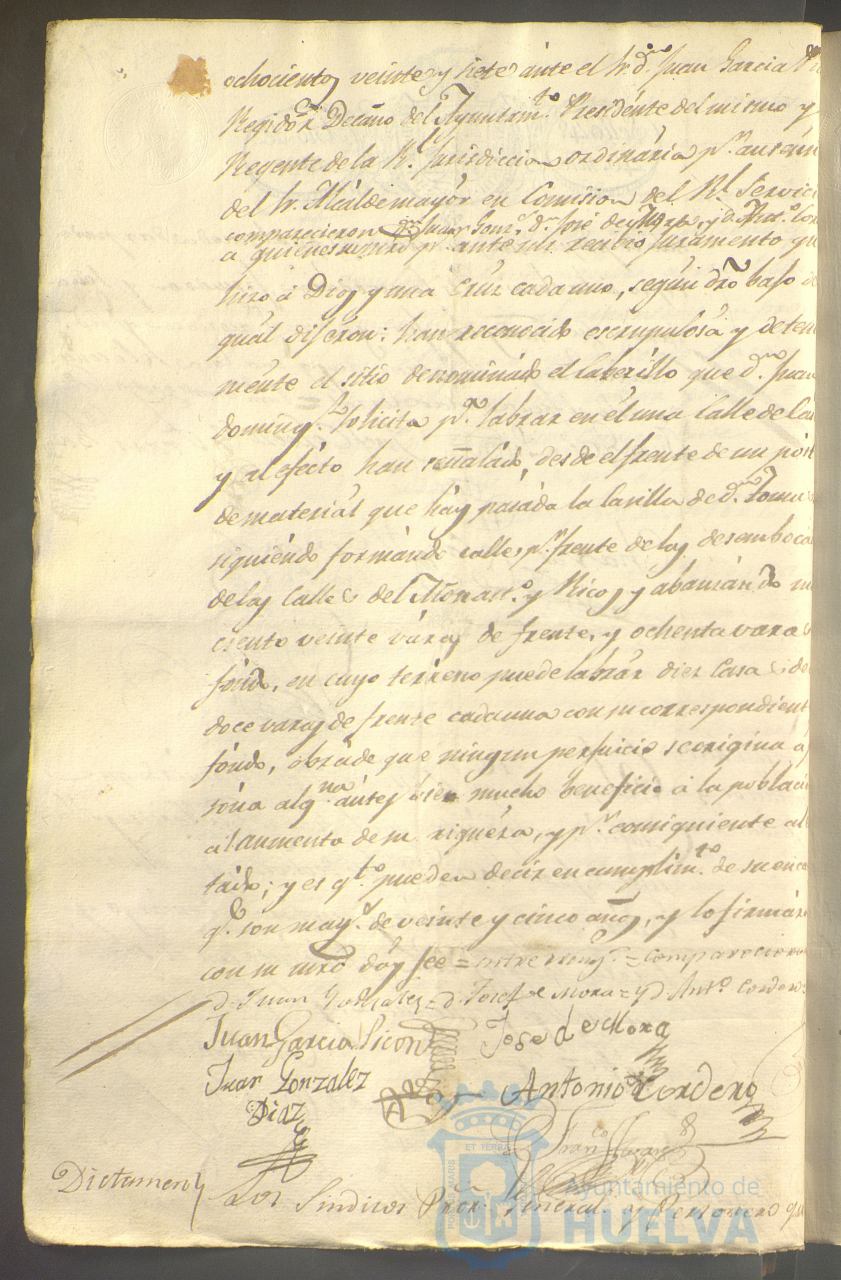 ochocientos veinte y siete ante el Sr. Dn. Juan Garcia
Regidor Decano del Ayuntamto. Presidente del mismo y
Regente de la Rl. Jurisdiccion ordinaria pr. ausen
del Sr. Alcalde mayor en Comision del Rl. Servici
comparecieron Dn. Juan Gonz. Dn. José de Mora, y D. Anto. Cor
a quienes su mrd pr. ante mi recibio juramento, qu
hizo á Dios y una Cruz cada uno, según dro bajo
quál digeron: han reconocido escrupulosa y deten
mente el sitio denominado el Cabezillo que Dn. Juan
Doming. solicita pa. labrar en él una Calle de Ca
y al efecto han señalado, desde el frente de un póst
de material que hay pasada la Casilla de Dn. Tomas
siguiendo formando calle pr. frente de las desemboca
de las Calles del Monasto. y Ricos, y abanzando
ciento veinte varas de frente, y ochenta varas
fondo, en cuyo terreno puede labrar diez Casas de
doce varas de frente cada una con su correspondient
fondo, obra de que ningun perjuicio se origina a
sona algna. ántes bien mucho beneficio á la poblaci
al aumento de su riqueza, y pr. consiguiente al
tado; y es qto. pueden decir en cumplimto. de su enca
qe. son mays. de veinte y cinco años, y lo firmar
con su mrd doy fee = entre rengs. = Comparecieron
D. Juan Gonzalez = D. Josef de Mora = y D. Anto. Cordero
Juan Garcia Picon
Jose de Mora
Juan Gonzalez
Diaz
Antonio Cordero
Franco.
Dictamen
Los Sindicos Procr. General y Personero qu
ET TERRA
Ayuntamiento de
HUELVA